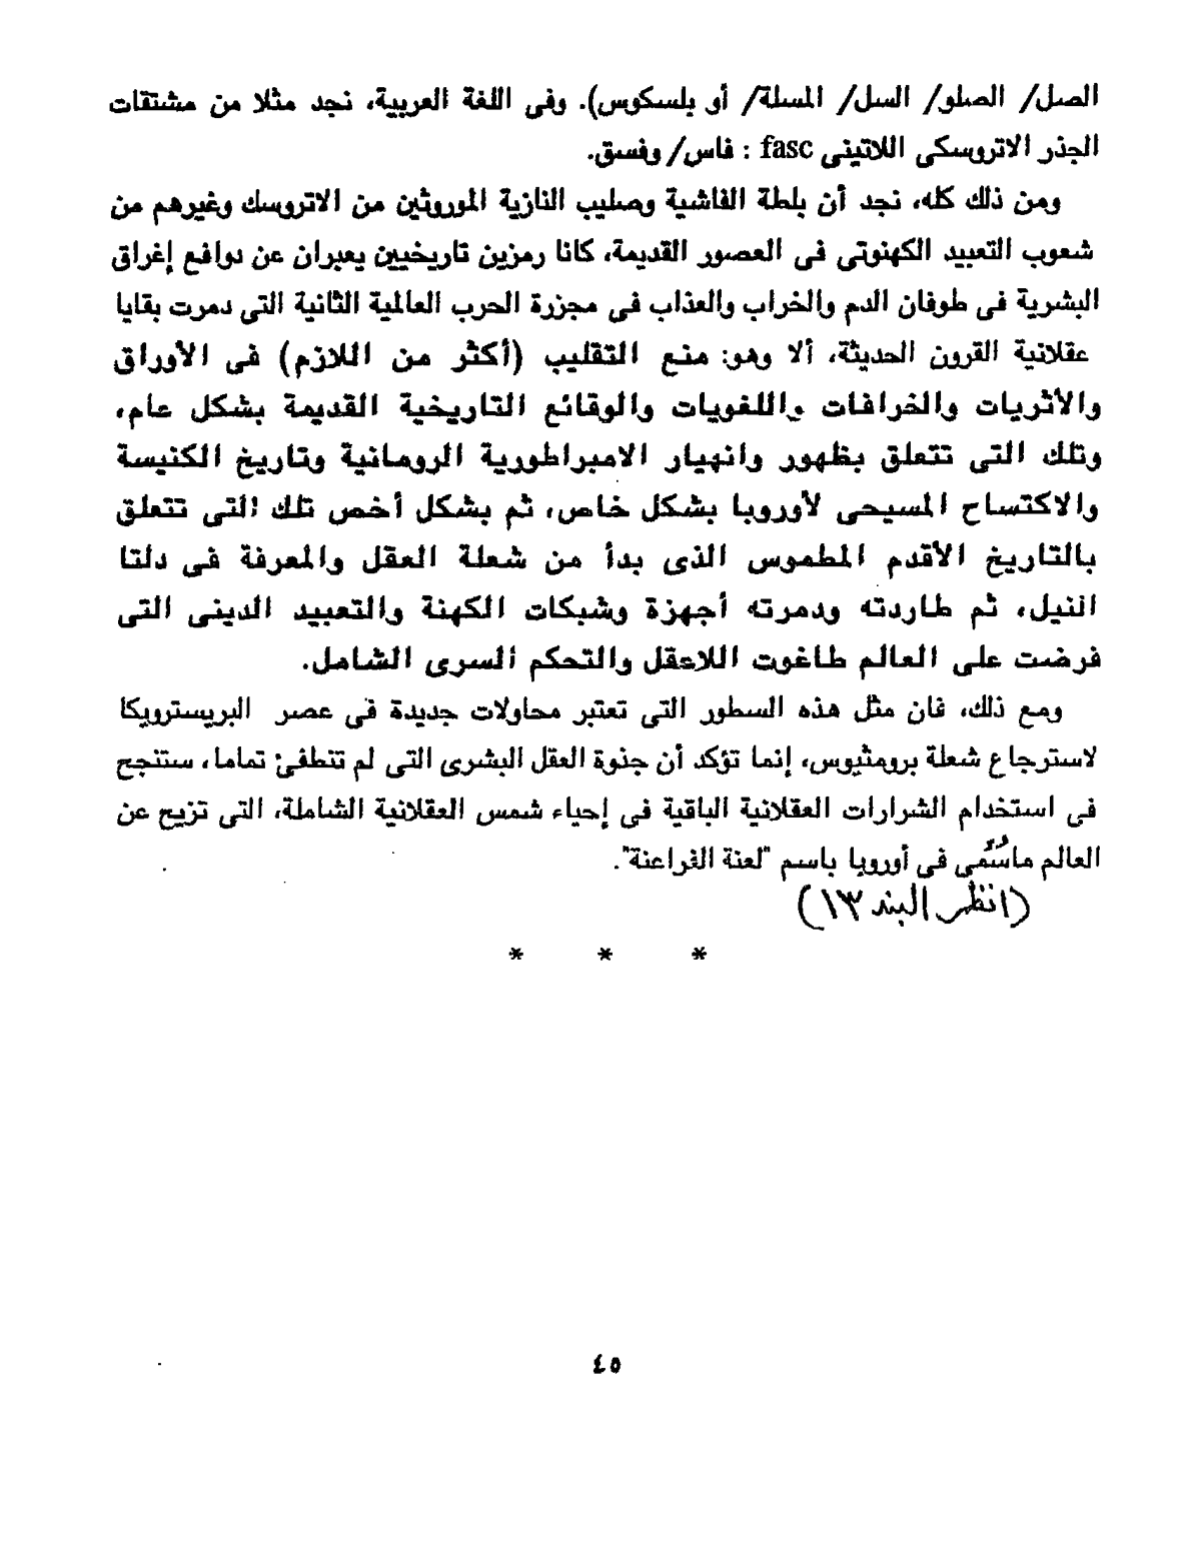 الصل/ الصلو/ السل/ المسلة/ أو بلسكوس). وفى اللغة العربية، نجد مثلا من مشتقات
الجذر الاتروسكى اللاتينى fasc : فاس/ وفسق.
ومن ذلك كله، نجد أن بلطة الفاشية وصليب النازية الموروثين من الاتروسك وغيرهم من
شعوب التعبيد الكهنوتى فى العصور القديمة، كانا رمزين تاريخيين يعبران عن دوافع إغراق
البشرية فى طوفان الدم والخراب والعذاب فى مجزرة الحرب العالمية الثانية التى دمرت بقايا
عقلانية القرون الحديثة، ألا وهو: منع التقليب (أكثر من اللازم) فى الأوراق
والأثريات والخرافات واللغويات والوقائع التاريخية القديمة بشكل عام،
وتلك التى تتعلق بظهور وانهيار الامبراطورية الرومانية وتاريخ الكنيسة
والاكتساح المسيحى لأوروبا بشكل خاص، ثم بشكل أخص تلك التى تتعلق
بالتاريخ الأقدم المطموس الذى بدأ من شعلة العقل والمعرفة فى دلتا
النيل، ثم طاردته ودمرته أجهزة وشبكات الكهنة والتعبيد الدينى التى
فرضت على العالم طاغوت اللاعقل والتحكم السرى الشامل.
ومع ذلك، فان مثل هذه السطور التى تعتبر محاولات جديدة فى عصر البريسترويكا
لاسترجاع شعلة برومثيوس، إنما تؤكد أن جذوة العقل البشرى التى لم تتطفئ تماما، ستنجح
فى استخدام الشرارات العقلانية الباقية فى إحياء شمس العقلانية الشاملة، التى تزيح عن
العالم ماسُمِّى فى أوروبا باسم "لعنة الفراعنة".
(انظر البند ١٣)
* * *
٤٥